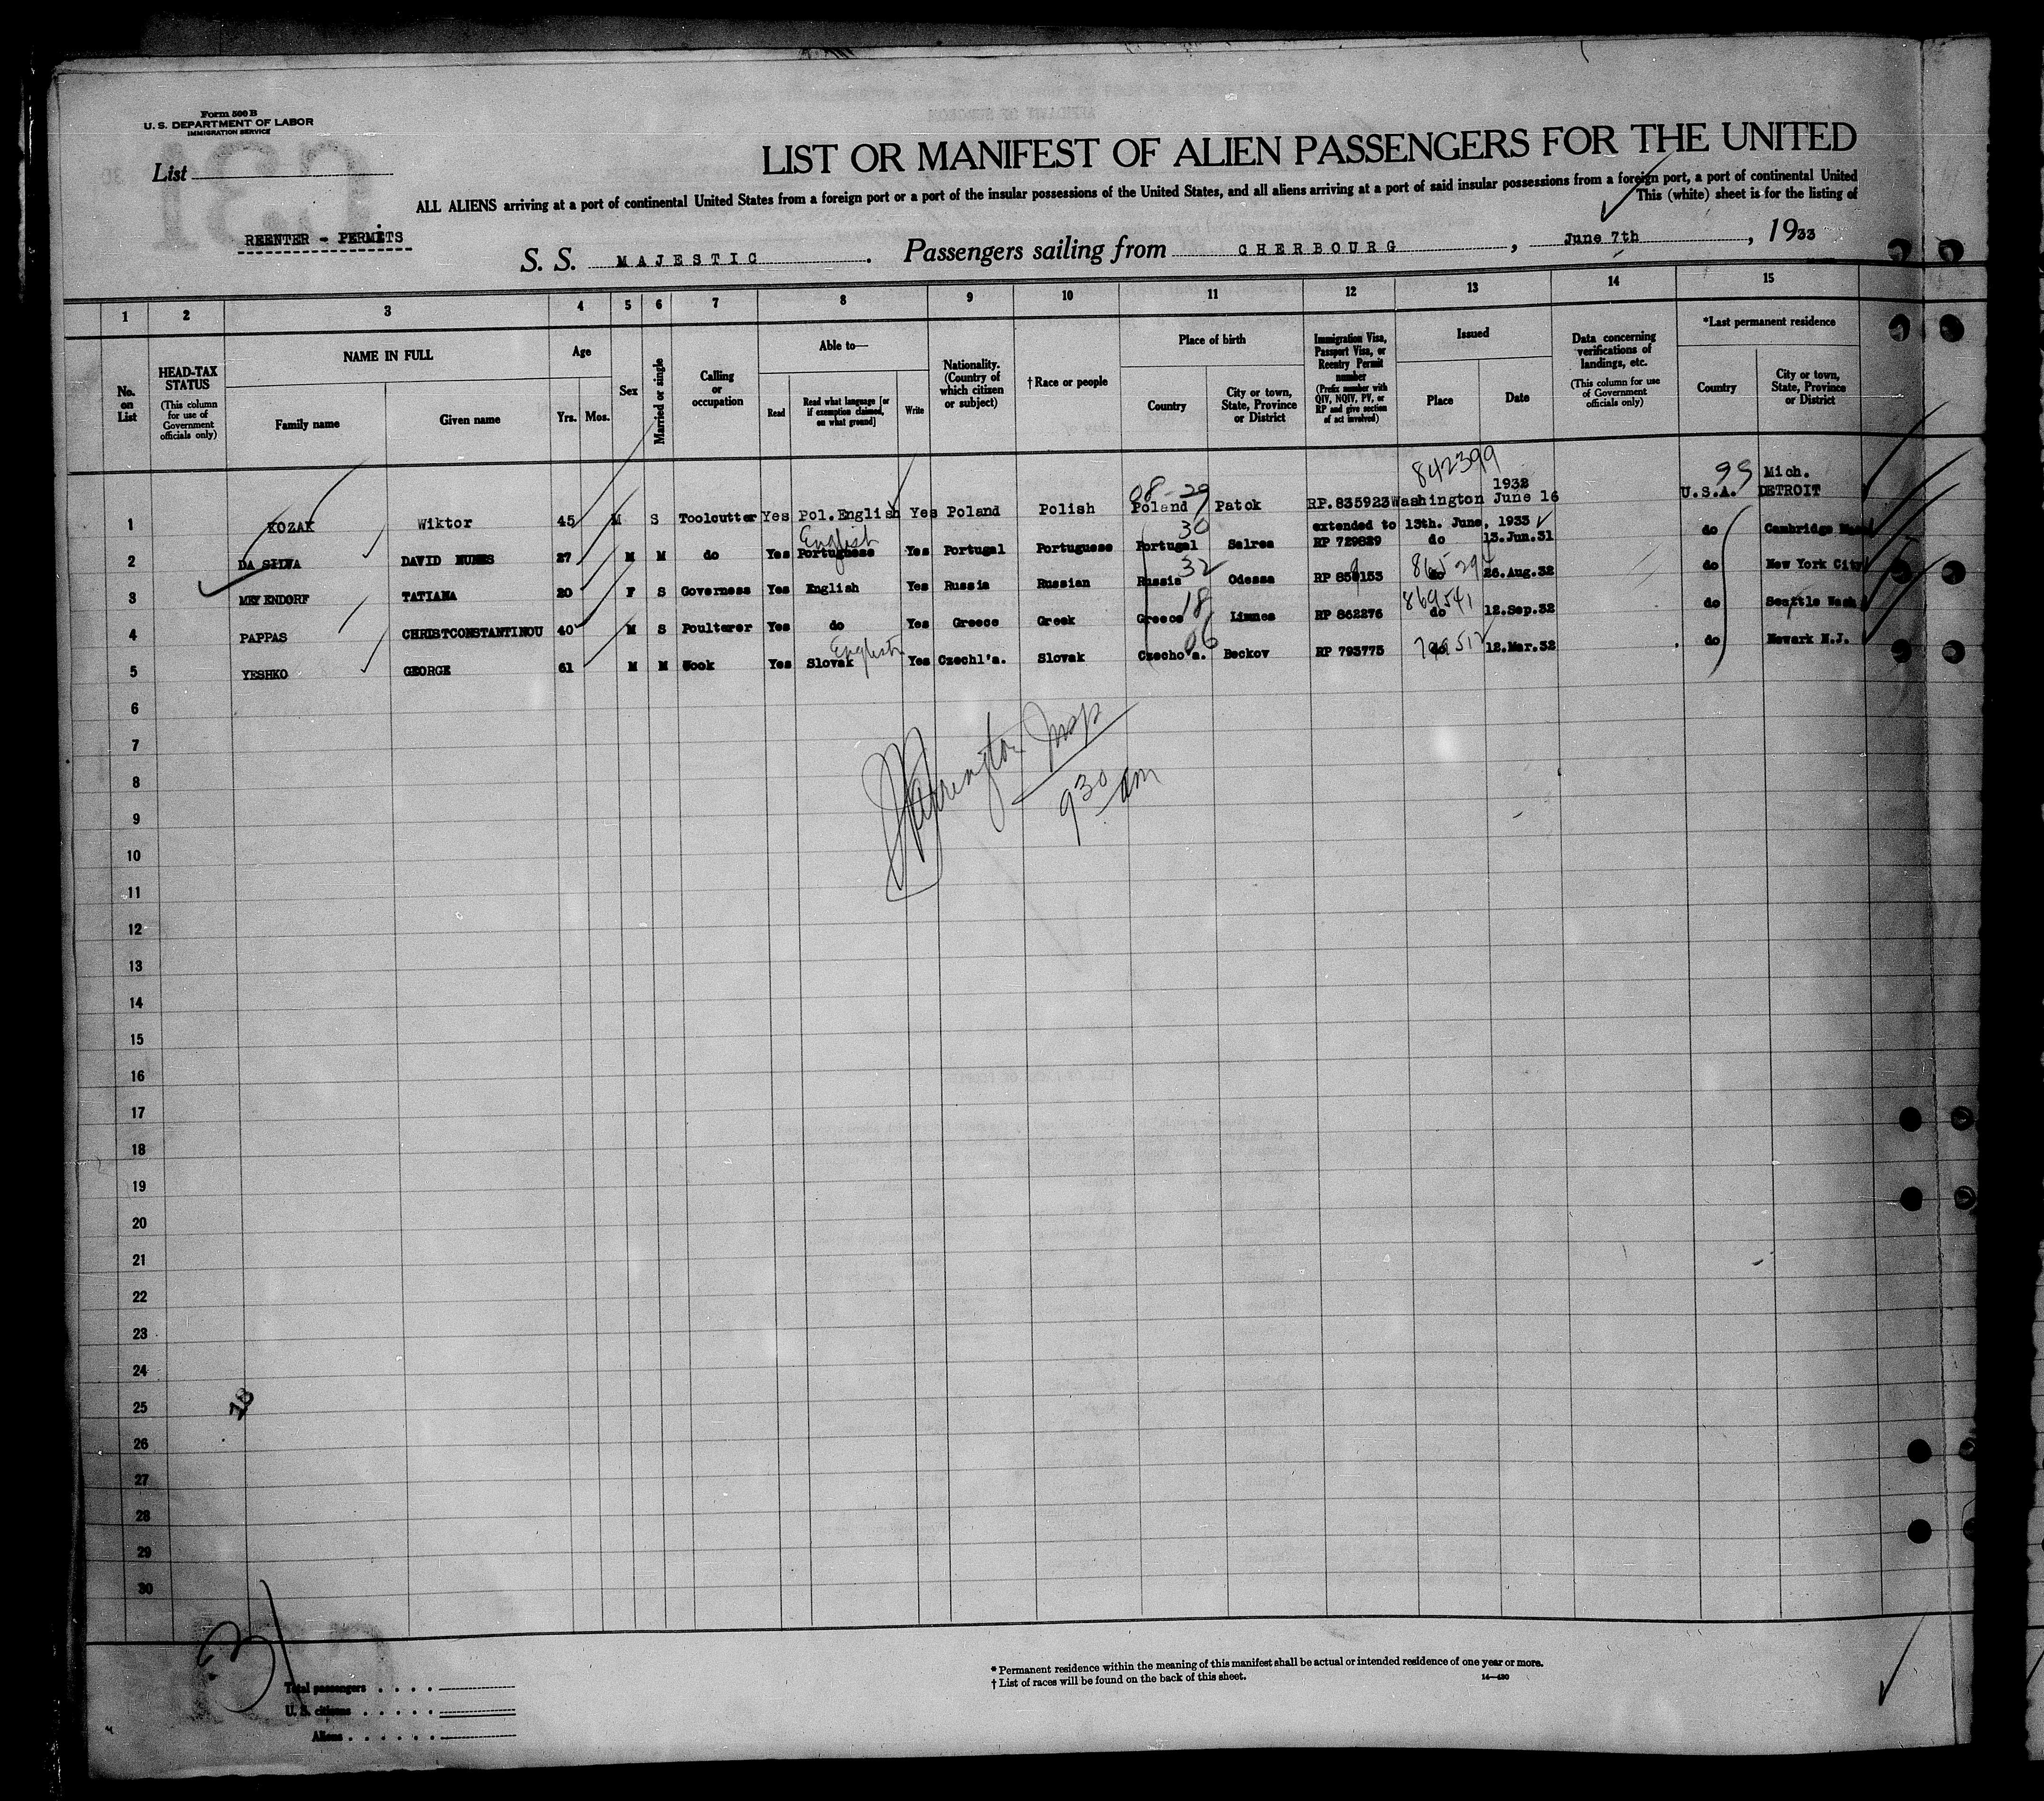 Form 500 B
U. S. DEPARTMENT OF LABOR
IMMIGRATION SERVICE
List
LIST OR MANIFEST OF ALIEN PASSENGERS FOR THE UNITED
ALL ALIENS arriving at a port of continental United States from a foreign port or a port of the insular possessions of the United States, and all aliens arriving at a port of said insular possessions from a foreign port, a port of continental United
This (white) sheet is for the listing of
REENTER - PERMITS
S. S. MAJESTIC. Passengers sailing from CHERBOURG, June 7th, 1933
1 2 3 4 5 6 7 8 9 10 11 12 13 14 15
No. on List
HEAD-TAX STATUS (This column for use of Government officials only)
NAME IN FULL
Family name
Given name
Age
Yrs. Mos.
Sex
Married or single
Calling or occupation
Able to—
Read
Read what language [or if exemption claimed, on what ground]
Write
Nationality. (Country of which citizen or subject)
†Race or people
Place of birth
Country
City or town, State, Province or District
Immigration Visa, Passport Visa, or Reentry Permit number (Prefix number with QIV, NQIV, PV, or RP and give section of act involved)
Issued
Place
Date
Data concerning verifications of landings, etc. (This column for use of Government officials only)
*Last permanent residence
Country
City or town, State, Province or District
842399
08-29 1932 99 Mich.
1 KOZAK Wiktor 45 M S Toolcutter Yes Pol.English Yes Poland Polish Poland Patok RP.835923 Washington June 16 U.S.A. DETROIT
extended to 13th. June, 1933
English 30
2 DA SILVA DAVID NUNES 27 M M do Yes Portuguese Yes Portugal Portuguese Portugal Salrea RP 729829 do 13.Jun.31 do Cambridge Mass
32
3 MEYENDORF TATIANA 20 F S Governess Yes English Yes Russia Russian Russia Odessa do 26.Aug.32 do New York City
18 869541
4 PAPPAS CHRISTCONSTANTINOU 40 M S Poulterer Yes do Yes Greece Greek Greece Limnes RP 862276 do 12.Sep.32 do Seattle Wash
English 06 799512
5 YESHKO GEORGE 61 M M Cook Yes Slovak Yes Czechl'a. Slovak Czecho'a. Beckov RP 793775 do 12.Mar.32 do Newark N.J.
6
7
Insp
8
9 30 am
9
10
11
12
13
14
15
16
17
18
19
20
21
22
23
24
25
26
27
28
29
30
* Permanent residence within the meaning of this manifest shall be actual or intended residence of one year or more.
† List of races will be found on the back of this sheet.
14—430
Total passengers
U. S. citizens
Aliens